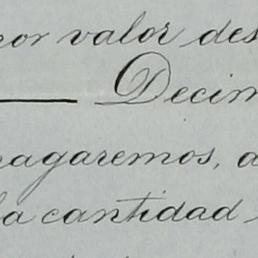 por valor des
Decim
pagaremos, a
la cantidad